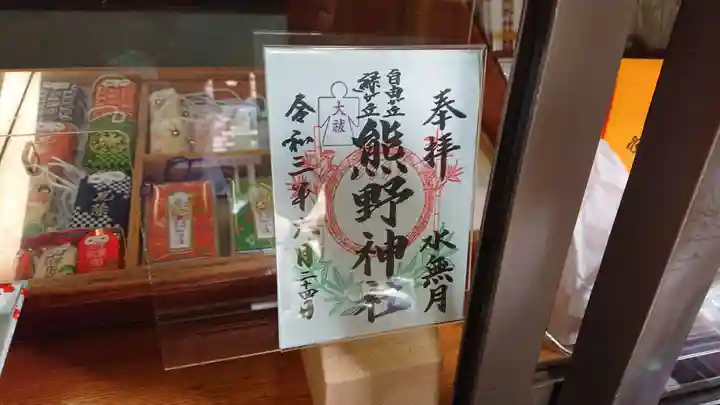 奉拝
水無月
自由が丘
緑が丘
熊野神社
大祓
令和三年六月二十四日